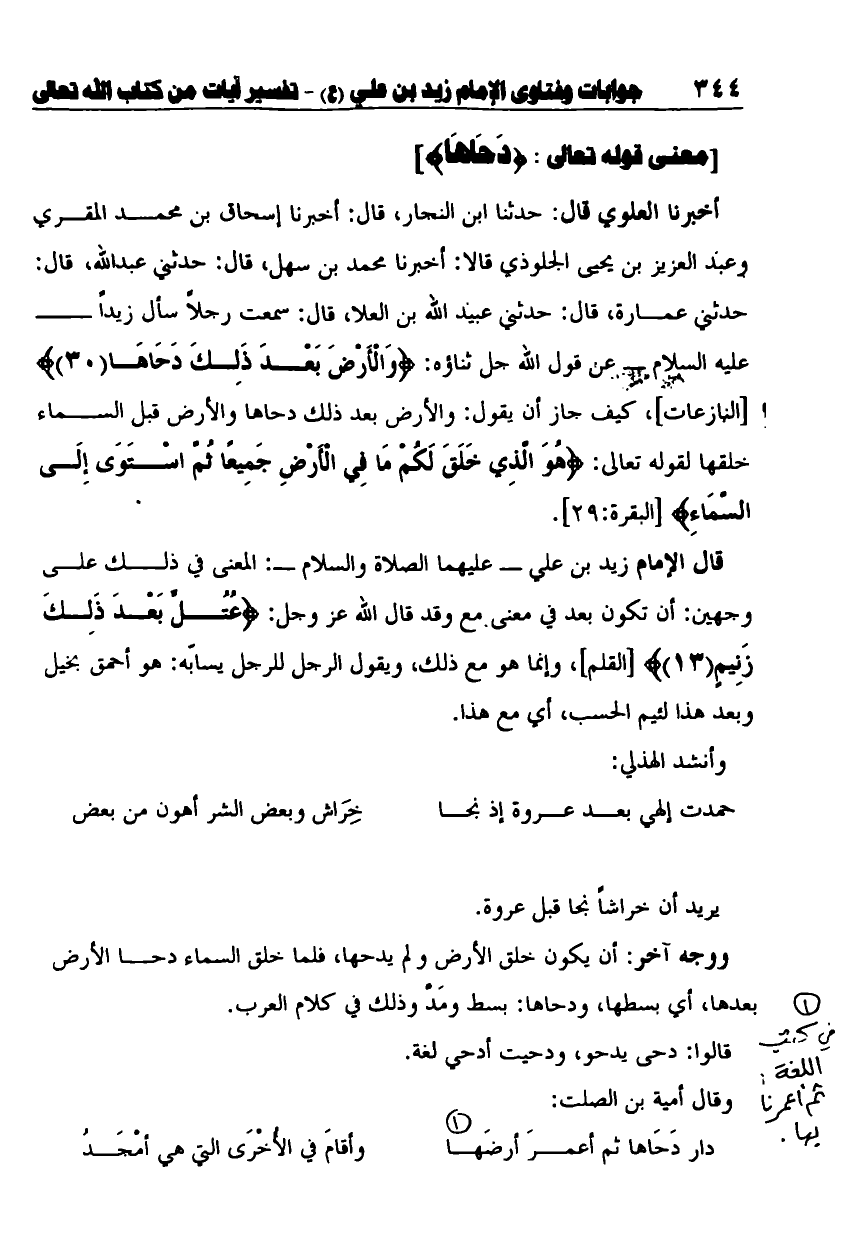 ٣٤٤ جوابات وفتاوى الإمام زيد بن علي (ع) - تفسير آيات من كتاب الله تعالى
[معنى قوله تعالى: ﴿دَحَاهَا﴾]
أخبرنا العلوي قال: حدثنا ابن النجار، قال: أخبرنا إسحاق بن محمد المقري
وعبد العزيز بن يحيى الجلوذي قالا: أخبرنا محمد بن سهل، قال: حدثني عبدالله، قال:
حدثني عمارة، قال: حدثني عبيد الله بن العلا، قال: سمعت رجلاً سأل زيداً ــ
عليه السلام ــ عن قول الله جل ثناؤه: ﴿وَالْأَرْضَ بَعْدَ ذَلِكَ دَحَاهَا(٣٠)﴾
[النازعات]، كيف جاز أن يقول: والأرض بعد ذلك دحاها والأرض قبل السماء
خلقها لقوله تعالى: ﴿هُوَ الَّذِي خَلَقَ لَكُمْ مَا فِي الْأَرْضِ جَمِيعًا ثُمَّ اسْتَوَى إِلَى
السَّمَاءِ﴾ [البقرة:٢٩].
قال الإمام زيد بن علي ــ عليهما الصلاة والسلام ــ: المعنى في ذلك على
وجهين: أن تكون بعد في معنى مع وقد قال الله عز وجل: ﴿عُتُلٍّ بَعْدَ ذَلِكَ
زَنِيمٍ(١٣)﴾ [القلم]، وإنما هو مع ذلك، ويقول الرجل للرجل يسابّه: هو أحمق بخيل
وبعد هذا لئيم الحسب، أي مع هذا.
وأنشد الهذلي:
حمدت إلهي بعد عروة إذ نجا خِرَاش وبعض الشر أهون من بعض
يريد أن خراشاً نجا قبل عروة.
ووجه آخر: أن يكون خلق الأرض ولم يدحها، فلما خلق السماء دحا الأرض
بعدها، أي بسطها، ودحاها: بسط ومَدَّ وذلك في كلام العرب.
قالوا: دحى يدحو، ودحيت أدحي لغة.
وقال أمية بن الصلت:
دار دَحَاها ثم أعمرَ أرضَهَا (١) وأقامَ في الأُخْرَى التي هي أمْجَدُ
(١)
في كتب
اللغة:
ثم أعمرنا
بها.